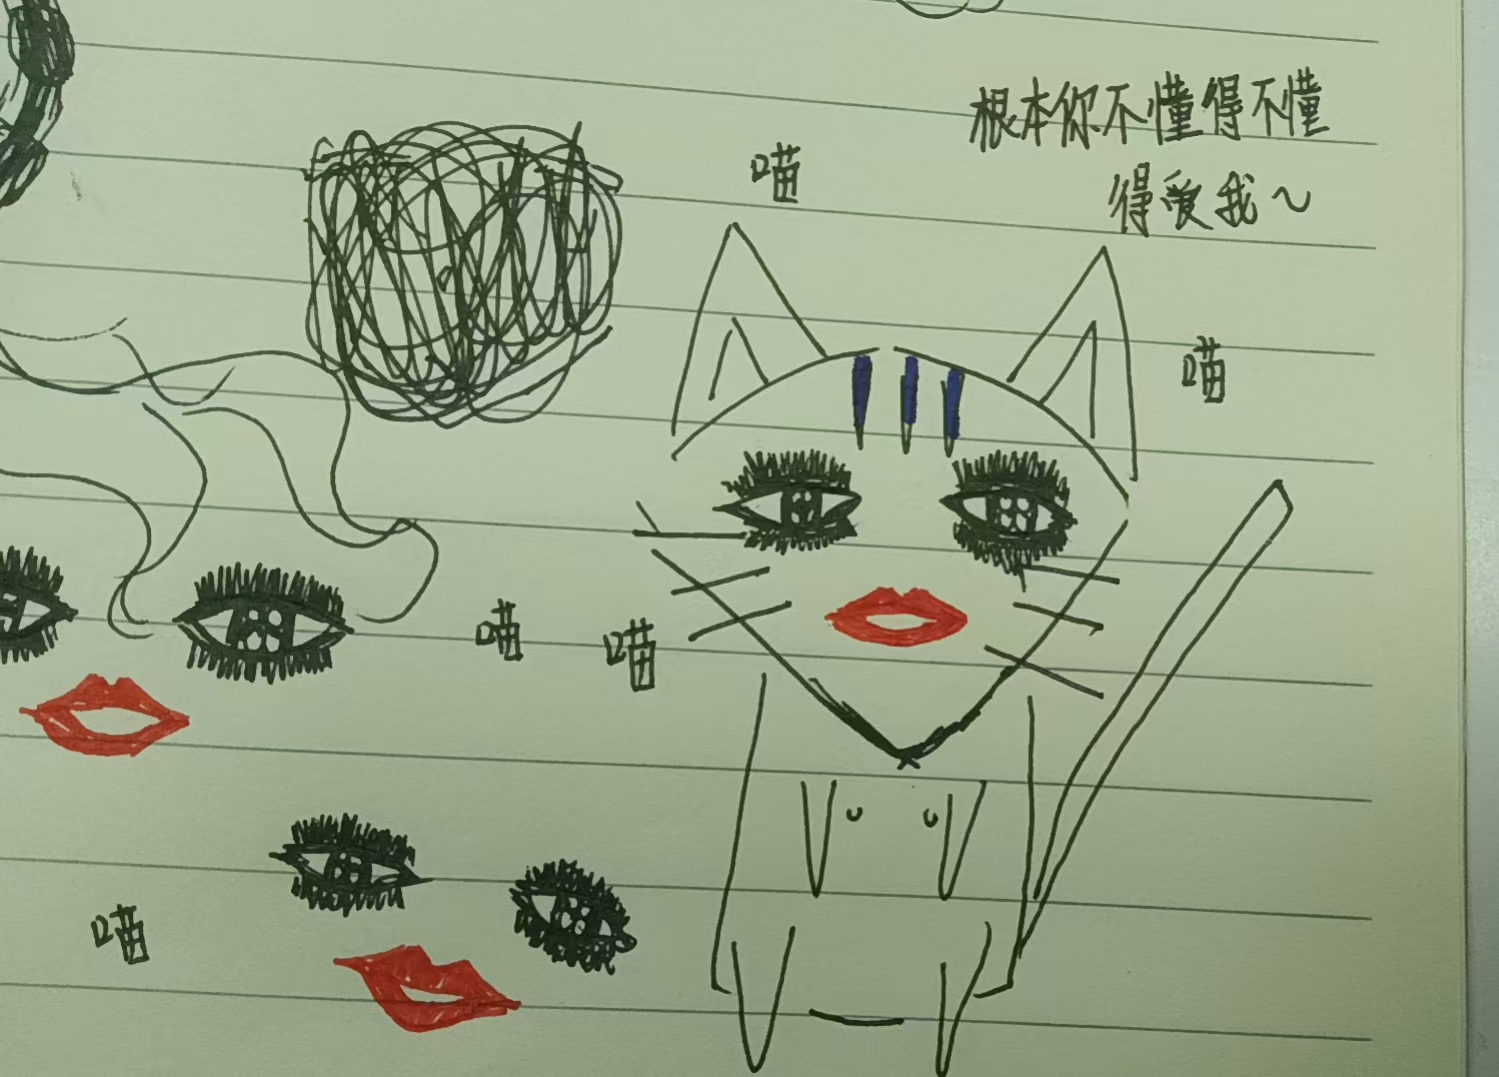 根本你不懂得不懂
得爱我~
喵
喵
喵
喵
喵